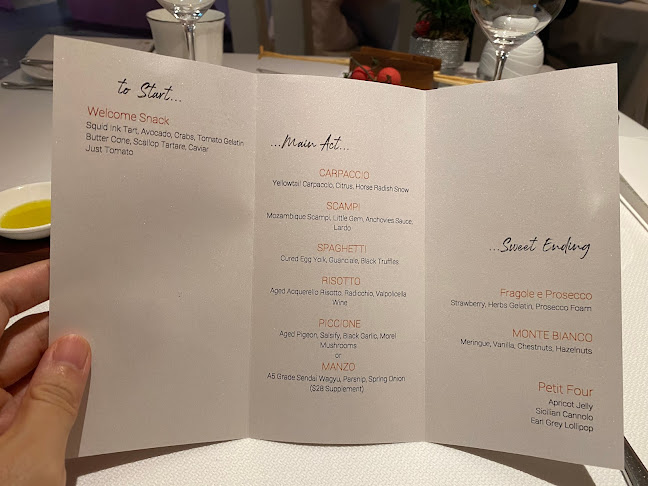 to Start...
Welcome Snack
Squid Ink Tart, Avocado, Crabs, Tomato Gelatin
Butter Cone, Scallop Tartare, Caviar
Just Tomato
...Main Act...
CARPACCIO
Yellowtail Carpaccio, Citrus, Horse Radish Snow
SCAMPI
Mozambique Scampi, Little Gem, Anchovies Sauce,
Lardo
SPAGHETTI
Cured Egg Yolk, Guanciale, Black Truffles
RISOTTO
Aged Acquerello Risotto, Radicchio, Valpolicella
Wine
PICCIONE
Aged Pigeon, Salsify, Black Garlic, Morel
Mushrooms
or
MANZO
A5 Grade Sendai Wagyu, Parsnip, Spring Onion
($28 Supplement)
...Sweet Ending
Fragole e Prosecco
Strawberry, Herbs Gelatin, Prosecco Foam
MONTE BIANCO
Meringue, Vanilla, Chestnuts, Hazelnuts
Petit Four
Apricot Jelly
Sicilian Cannolo
Earl Grey Lollipop